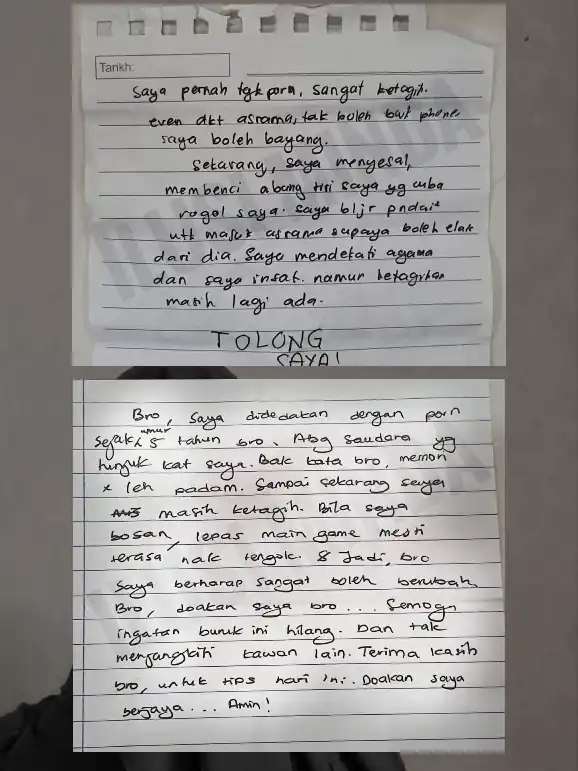 Tarikh:
Saya pernah tgk porn, sangat ketagih.
even dkt asrama, tak boleh bwk phone,
saya boleh bayang.
Sekarang, saya menyesal,
membenci abang tiri saya yg cuba
rogol saya. Saya bljr pndai²
utk masuk asrama supaya boleh elak
dari dia. Saya mendekati agama
dan saya insaf. namun ketagihan
masih lagi ada.
TOLONG
SAYA!
Bro, saya didedakan dengan porn
sejak umur 5 tahun bro. Abg saudara yg
tunjuk kat saya. Bak kata bro, memori
x leh padam. Sampai sekarang saya
masih ketagih. Bila saya
bosan, lepas main game mesti
terasa nak tengok. Jadi, bro
saya berharap sangat boleh berubah.
Bro, doakan saya bro... Semoga
ingatan buruk ini hilang. Dan tak
menjangkiti kawan lain. Terima kasih
bro, untuk tips hari ini. Doakan saya
berjaya... Amin!